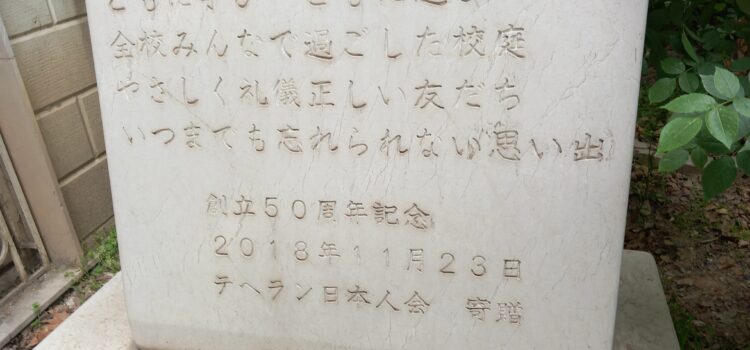 ともに学び ともに遊
全校みんなで過ごした校庭
やさしく礼儀正しい友だち
いつまでも忘れられない思い出
創立50周年記念
2018年11月23日
テヘラン日本人会 寄贈